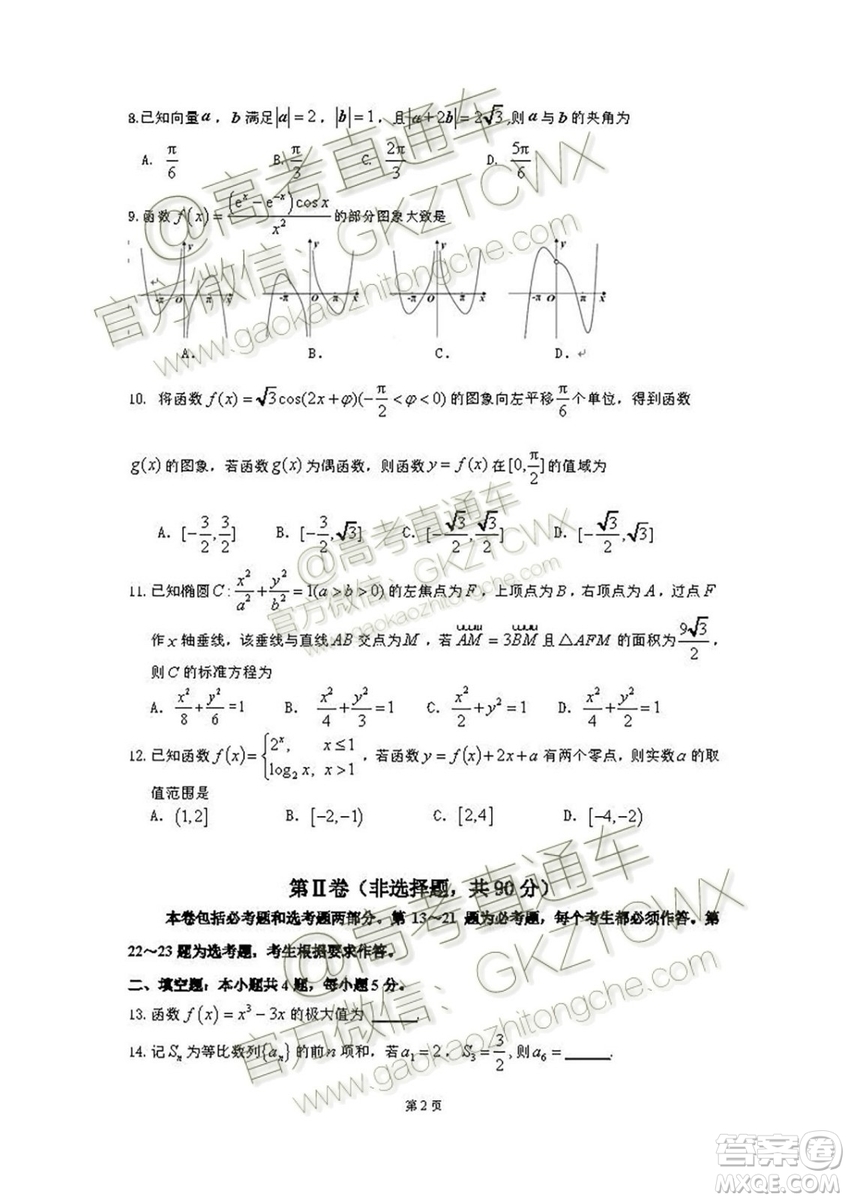 8.已知向量a，b满足|a|=2，|b|=1，且|a+2b|=2√3,则a与b的夹角为
A. π/6 B. π/3 C. 2π/3 D. 5π/6
9.函数f(x)=(e^x-e^{-x})cosx/x²的部分图象大致是
y y y y
-π O π x -π O π x -π O π x -π O π x
A. B. C. D.
10. 将函数f(x)=√3cos(2x+φ)(-π/2<φ<0)的图象向左平移π/6个单位，得到函数
g(x)的图象，若函数g(x)为偶函数，则函数y=f(x)在[0,π/2]的值域为
A. [-3/2,3/2] B. [-3/2,√3] C. [-√3/2,√3/2] D. [-√3/2,√3]
11. 已知椭圆C:x²/a²+y²/b²=1(a>b>0)的左焦点为F，上顶点为B，右顶点为A，过点F
作x轴垂线，该垂线与直线AB交点为M，若AM=3BM且△AFM的面积为9√3/2，
则C的标准方程为
A. x²/8+y²/6=1 B. x²/4+y²/3=1 C. x²/2+y²=1 D. x²/4+y²/2=1
12. 已知函数f(x)={2^x, x≤1
log₂x, x>1，若函数y=f(x)+2x+a有两个零点，则实数a的取
值范围是
A. (1,2] B. [-2,-1) C. [2,4] D. [-4,-2)
第Ⅱ卷（非选择题，共90分）
本卷包括必考题和选考题两部分。第13～21题为必考题，每个考生都必须作答。第
22～23题为选考题，考生根据要求作答。
二、填空题：本小题共4题，每小题5分。
13. 函数f(x)=x³-3x的极大值为 ______.
14. 记Sₙ为等比数列{aₙ}的前n项和，若a₁=2，S₃=3/2,则a₆=______.
第2页
@高考直通车
官方微信：GKZTCWX
www.gaokaozhitongche.com
@高考直通车
官方微信：GKZTCWX
www.gaokaozhitongche.com
@高考直通车
官方微信：GKZTCWX
www.gaokaozhitongche.com
答案圈
MXQE.COM